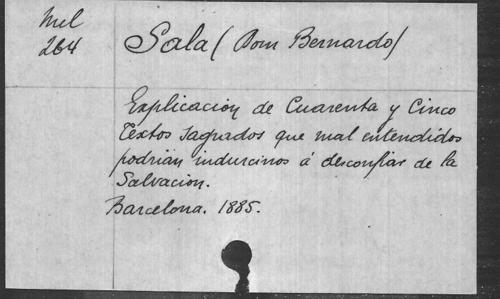 Mel
264
Sala (Dom Bernardo)
Explicacion de Cuarenta y Cinco
Textos sagrados que mal entendidos
podrian indurcinos á desconfiar de la
Salvacion.
Barcelona. 1885.